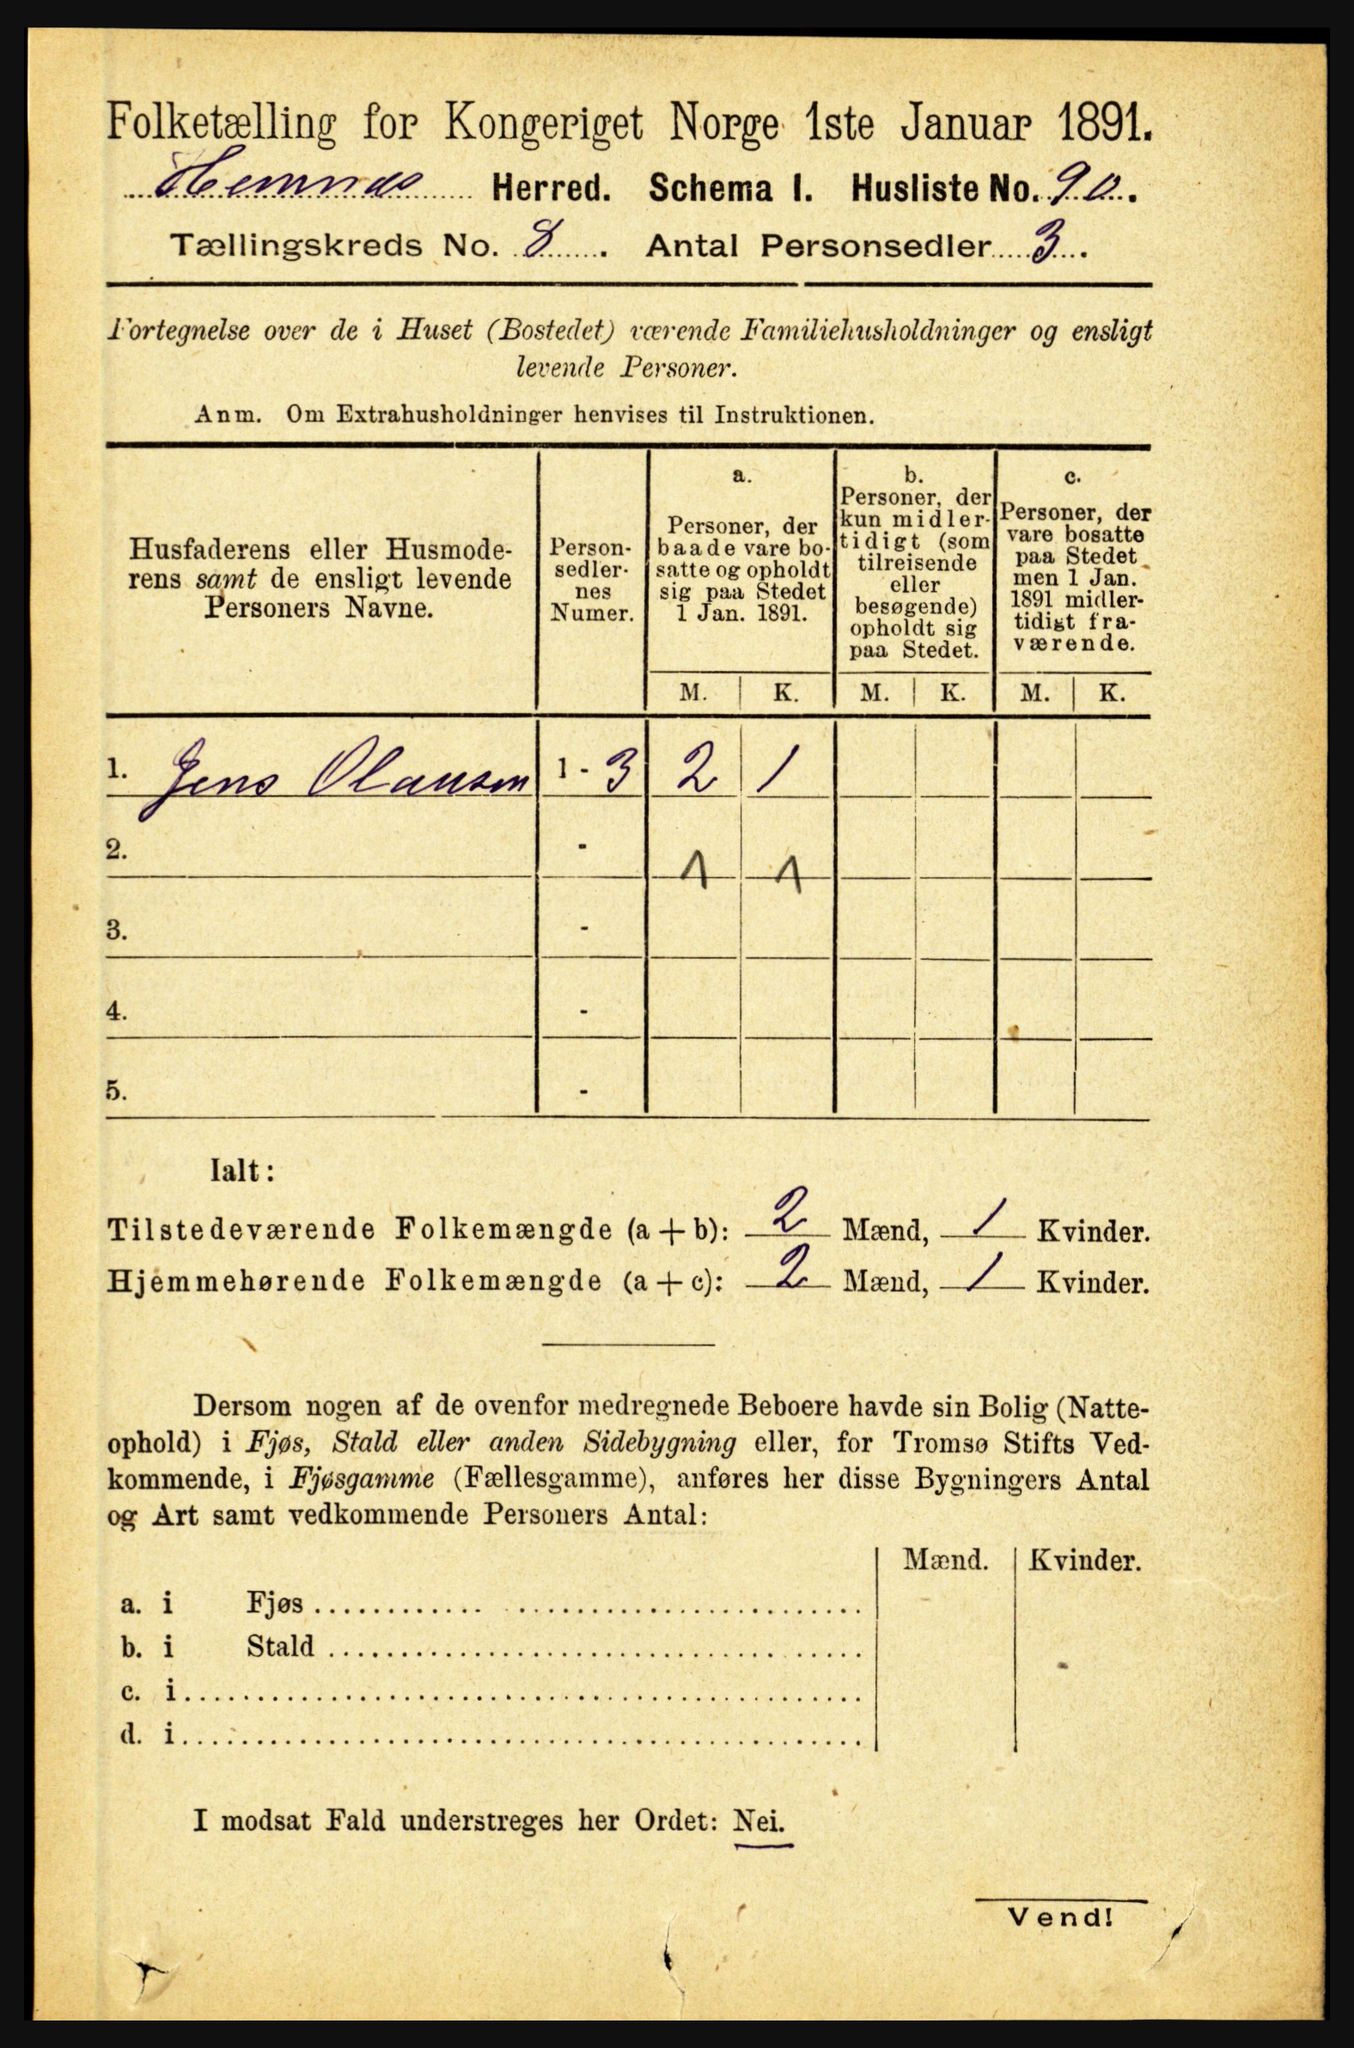 Folketælling for Kongeriget Norge 1ste Januar 1891.
Hemnæs Herred. Schema I. Husliste No. 90.
Tællingskreds No. 8. Antal Personsedler 3.
Fortegnelse over de i Huset (Bostedet) værende Familiehusholdninger og ensligt
levende Personer.
Anm. Om Extrahusholdninger henvises til Instruktionen.
Husfaderens eller Husmode-
rens samt de ensligt levende
Personers Navne.
Person-
sedler-
nes
Numer.
a.
Personer, der
baade vare bo-
satte og opholdt
sig paa Stedet
1 Jan. 1891.
b.
Personer, der
kun midler-
tidigt (som
tilreisende
eller
besøgende)
opholdt sig
paa Stedet.
c.
Personer, der
vare bosatte
paa Stedet
men 1 Jan.
1891 midler-
tidigt fra-
værende.
M. K. M. K. M. K.
1. Jens Olausen 1 - 3 2 1
2. - 1 1
3. -
4. -
5. -
Ialt:
Tilstedeværende Folkemængde (a + b): 2 Mænd, 1 Kvinder.
Hjemmehørende Folkemængde (a + c): 2 Mænd, 1 Kvinder.
Dersom nogen af de ovenfor medregnede Beboere havde sin Bolig (Natte-
ophold) i Fjøs, Stald eller anden Sidebygning eller, for Tromsø Stifts Ved-
kommende, i Fjøsgamme (Fællesgamme), anføres her disse Bygningers Antal
og Art samt vedkommende Personers Antal:
Mænd. Kvinder.
a. i Fjøs
b. i Stald
c. i
d. i
I modsat Fald understreges her Ordet: Nei.
Vend!